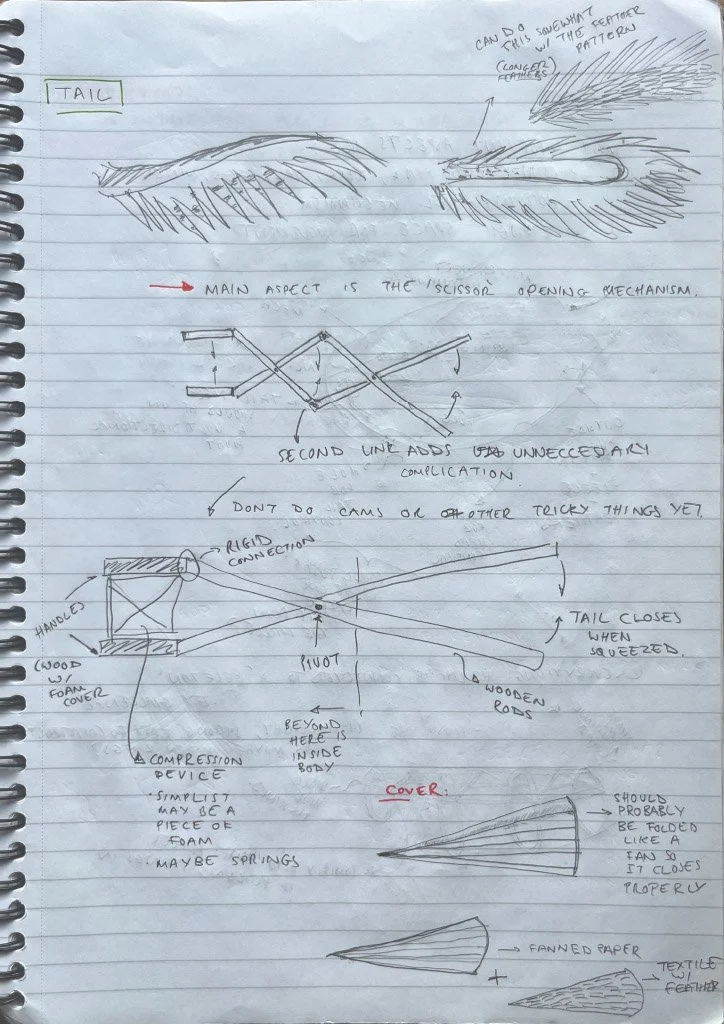 CAN DO
THIS SOMEWHAT
W/ THE FEATHER
PATTERN
(LONGER
FEATHERS)
TAIL
→ MAIN ASPECT IS THE 'SCISSOR' OPENING MECHANISM.
SECOND LINK ADDS UNNECCEDARY
COMPLICATION.
DONT DO CAMS OR OTHER TRICKY THINGS YET.
RIGID
CONNECTION
HANDLES
(WOOD
W/
FOAM
COVER
PIVOT
TAIL CLOSES
WHEN
SQUEEZED.
WOODEN
RODS
BEYOND
HERE IS
INSIDE
BODY
COMPRESSION
DEVICE
• SIMPLIST
MAY BE A
PIECE OF
FOAM
MAYBE SPRINGS
COVER.
SHOULD
PROBABLY
BE FOLDED
LIKE A
FAN SO
IT CLOSES
PROPERLY
→ FANNED PAPER
+
TEXTILE
W/
FEATHER